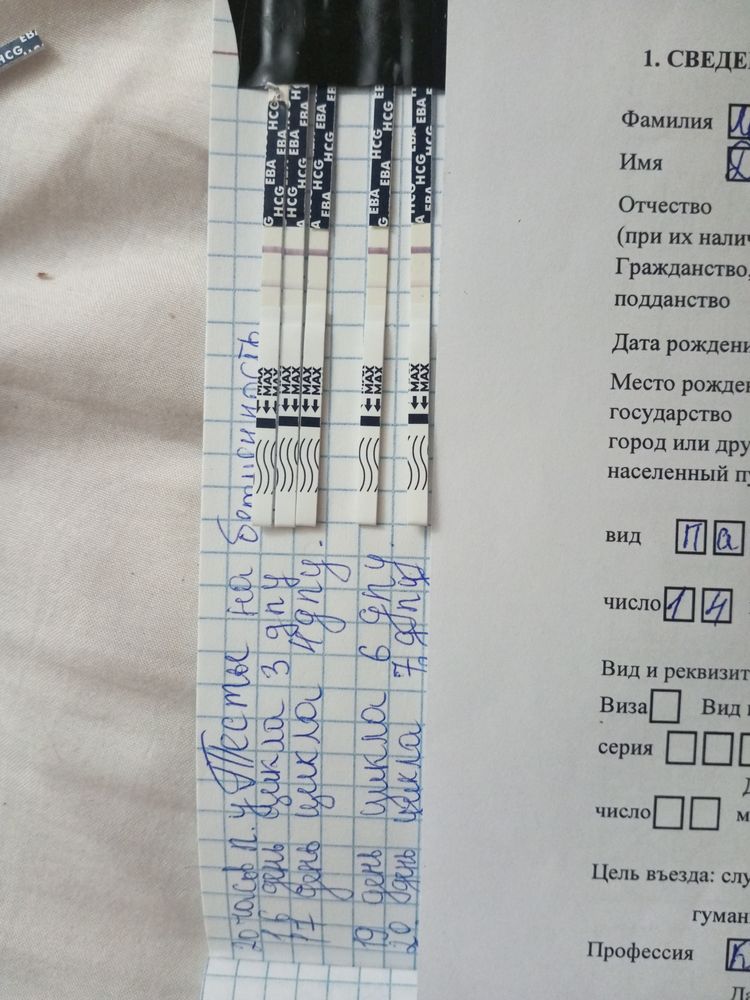 HCG EBA
HCG EBA
1. СВЕДЕ
Фамилия
Имя
Отчество
(при их налич
Гражданство,
подданство
Дата рождени
Место рожден
государство
город или дру
населенный пу
вид П а
число 1 4
Вид и реквизит
Виза Вид
серия
число м
Цель въезда: слу
гуман
Профессия К
MAX
MAX
MAX
MAX
MAX
Тесты на беременность
16 день цикла 3 дпу
17 день цикла 4 дпу.
19 день цикла 6 дпу
20 день цикла 7 дпу